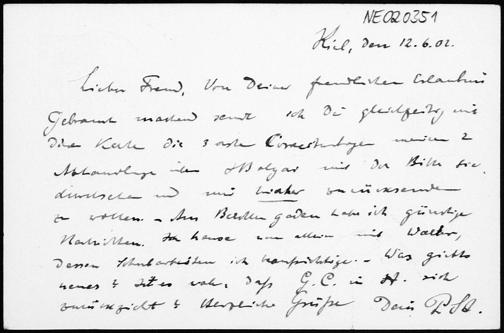 NE020351
Kiel, den 12.6.02.
Lieber Freund, Von Deiner freundlichen Erlaubnis
Gebrauch machend sende ich Dir gleichzeitig mit
dieser Karte die 3 ersten Correcturbogen meiner
Abhandlung über mit der Bitte sie
durchzusehen und mir zurücksenden
zu wollen. – Aus Berchtesgaden habe ich günstige
Nachrichten. Zu Hause nun allein mit Walter,
dessen Schularbeiten ich beaufsichtige. – Was giebts
neues? Ist es wahr, daß G. C. in H. sich
zurückzieht? Herzliche Grüße Dein P. St.